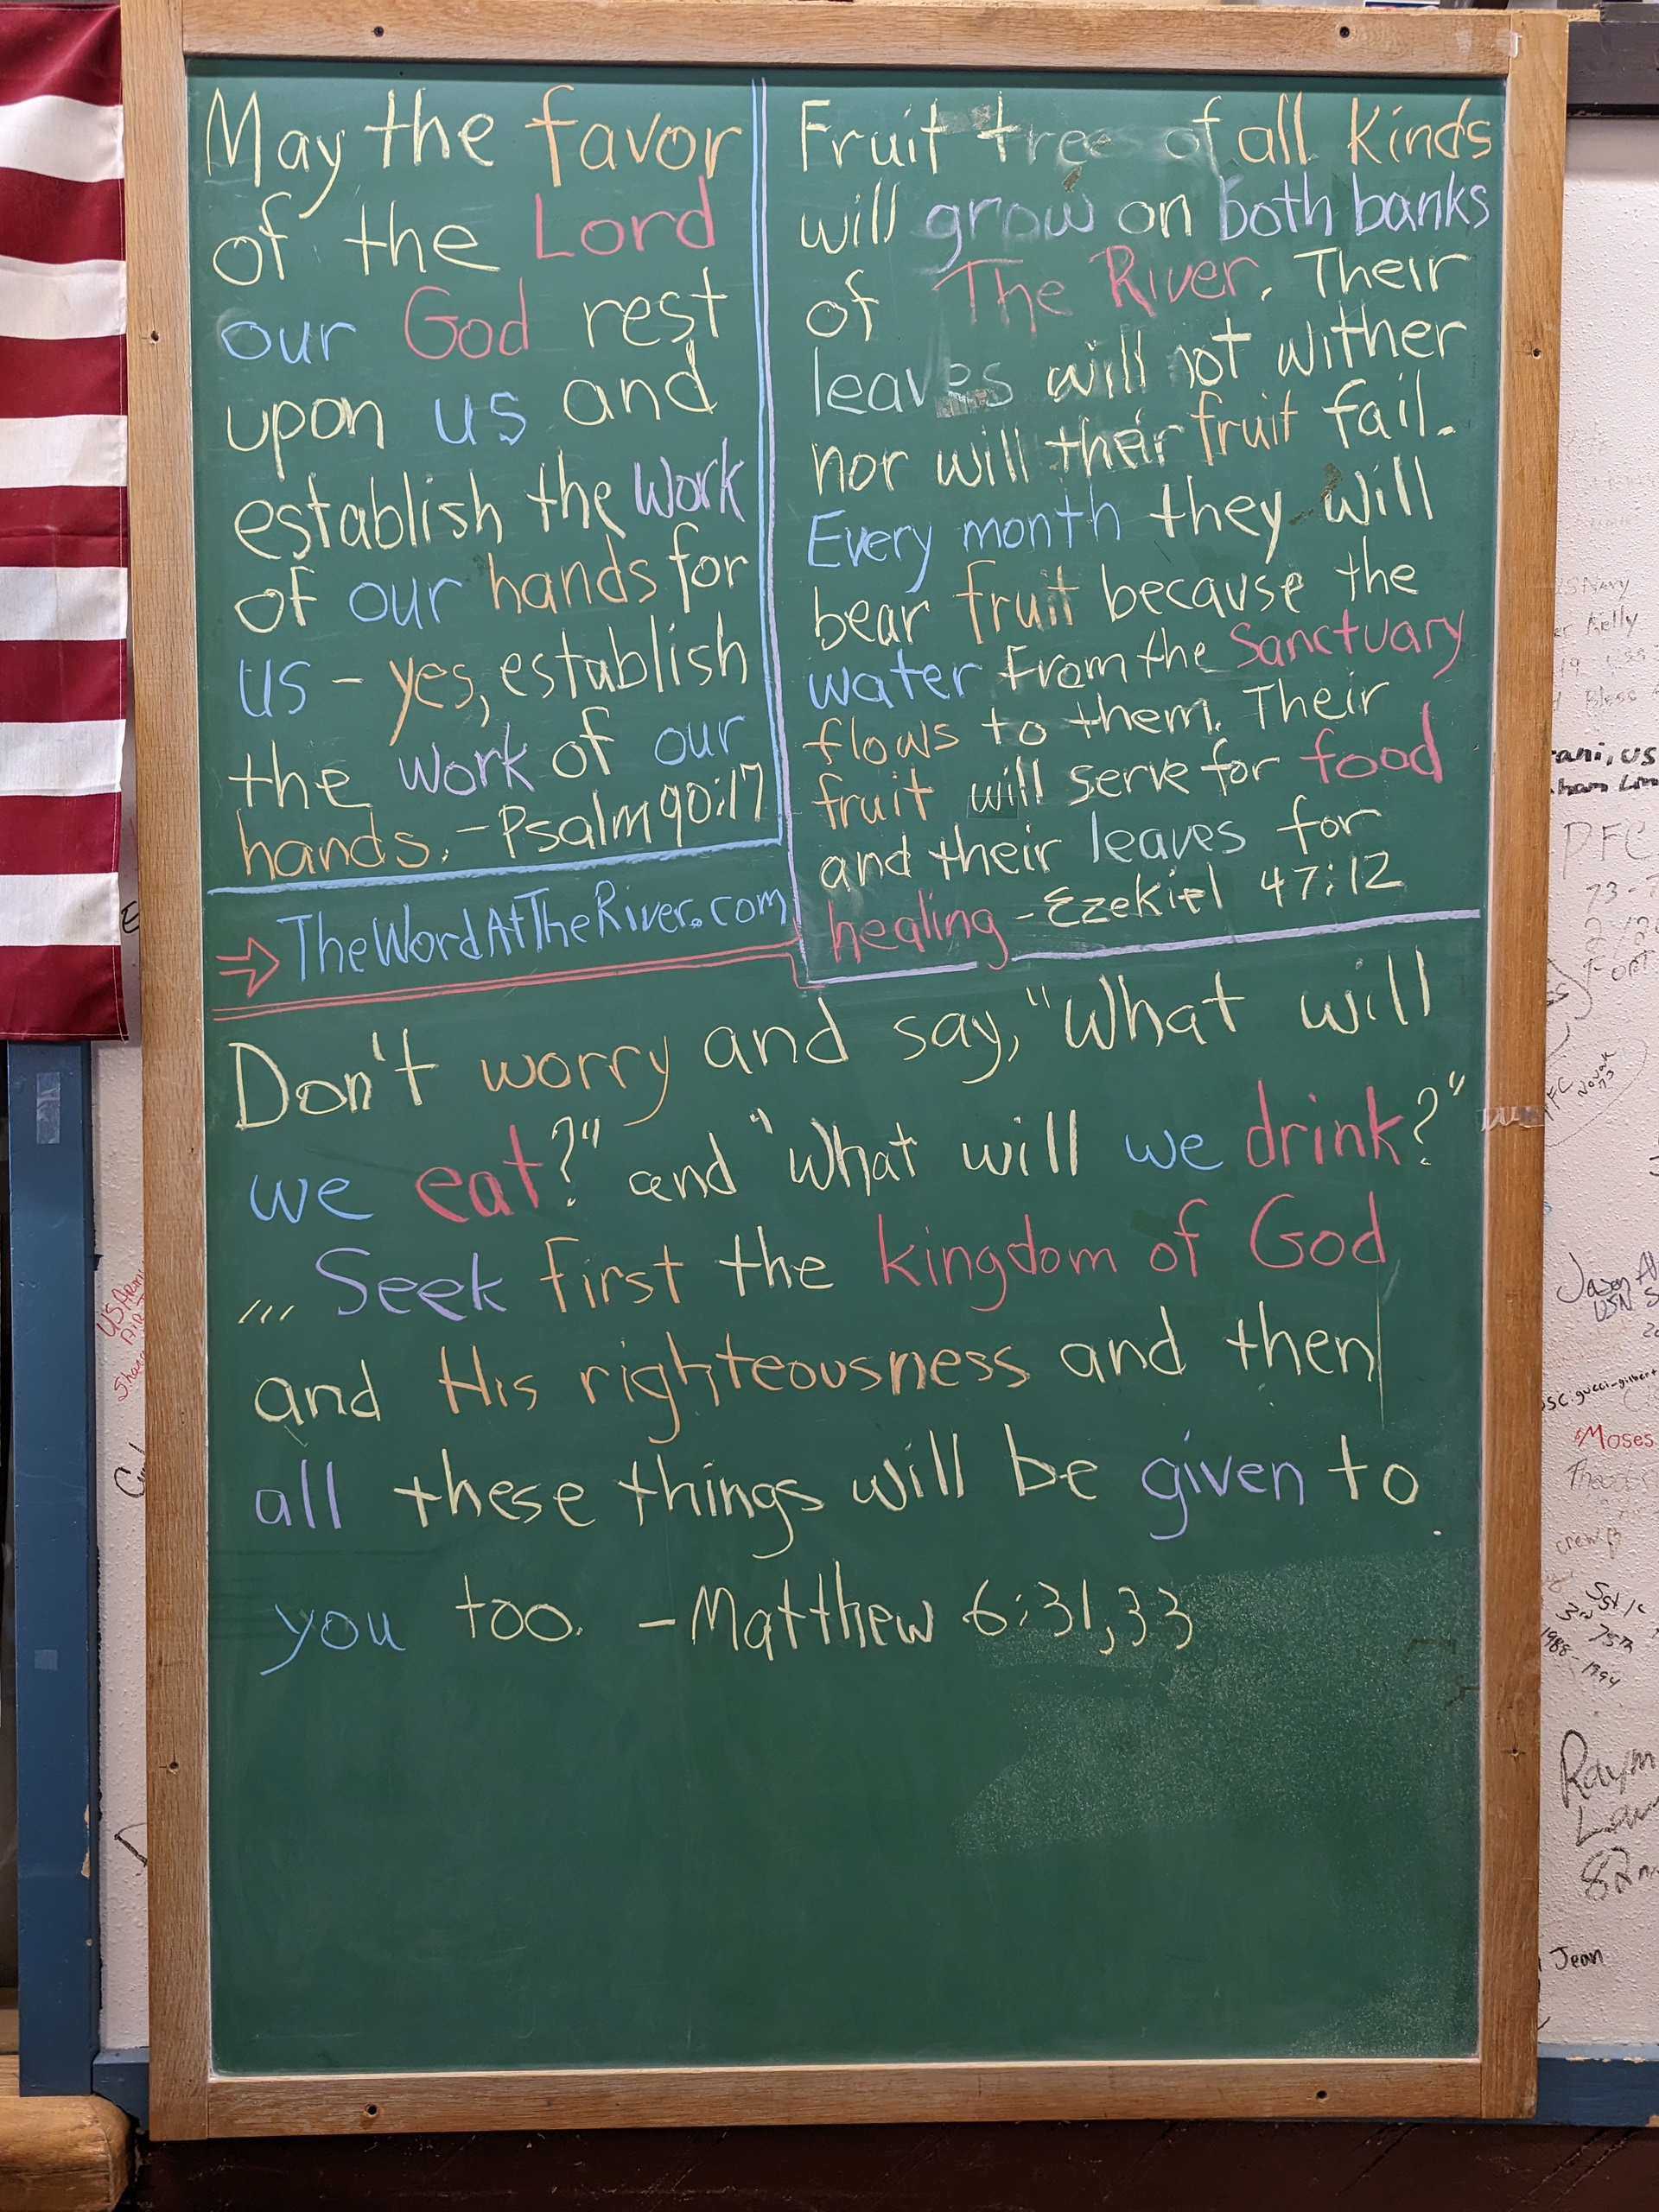 May the favor
of the Lord
our God rest
upon us and
establish the work
of our hands for
us - yes, establish
the work of our
hands. - Psalm 90:17
TheWordAtTheRiver.com
Fruit tree of all kinds
will grow on both banks
of The River. Their
leaves will not wither
nor will their fruit fail.
Every month they will
bear fruit because the
water from the Sanctuary
flows to them. Their
fruit will serve for food
and their leaves for
healing - Ezekiel 47:12
Don't worry and say, "What will
we eat?" and "What will we drink?"
... Seek first the kingdom of God
and His righteousness and then
all these things will be given to
you too. - Matthew 6:31,33
US Navy
Kelly
Bless
PFC
PFC
Novak
73
Jason
USN
Moses
crew
Sgt
75th
1988-1994
Jean
US Army